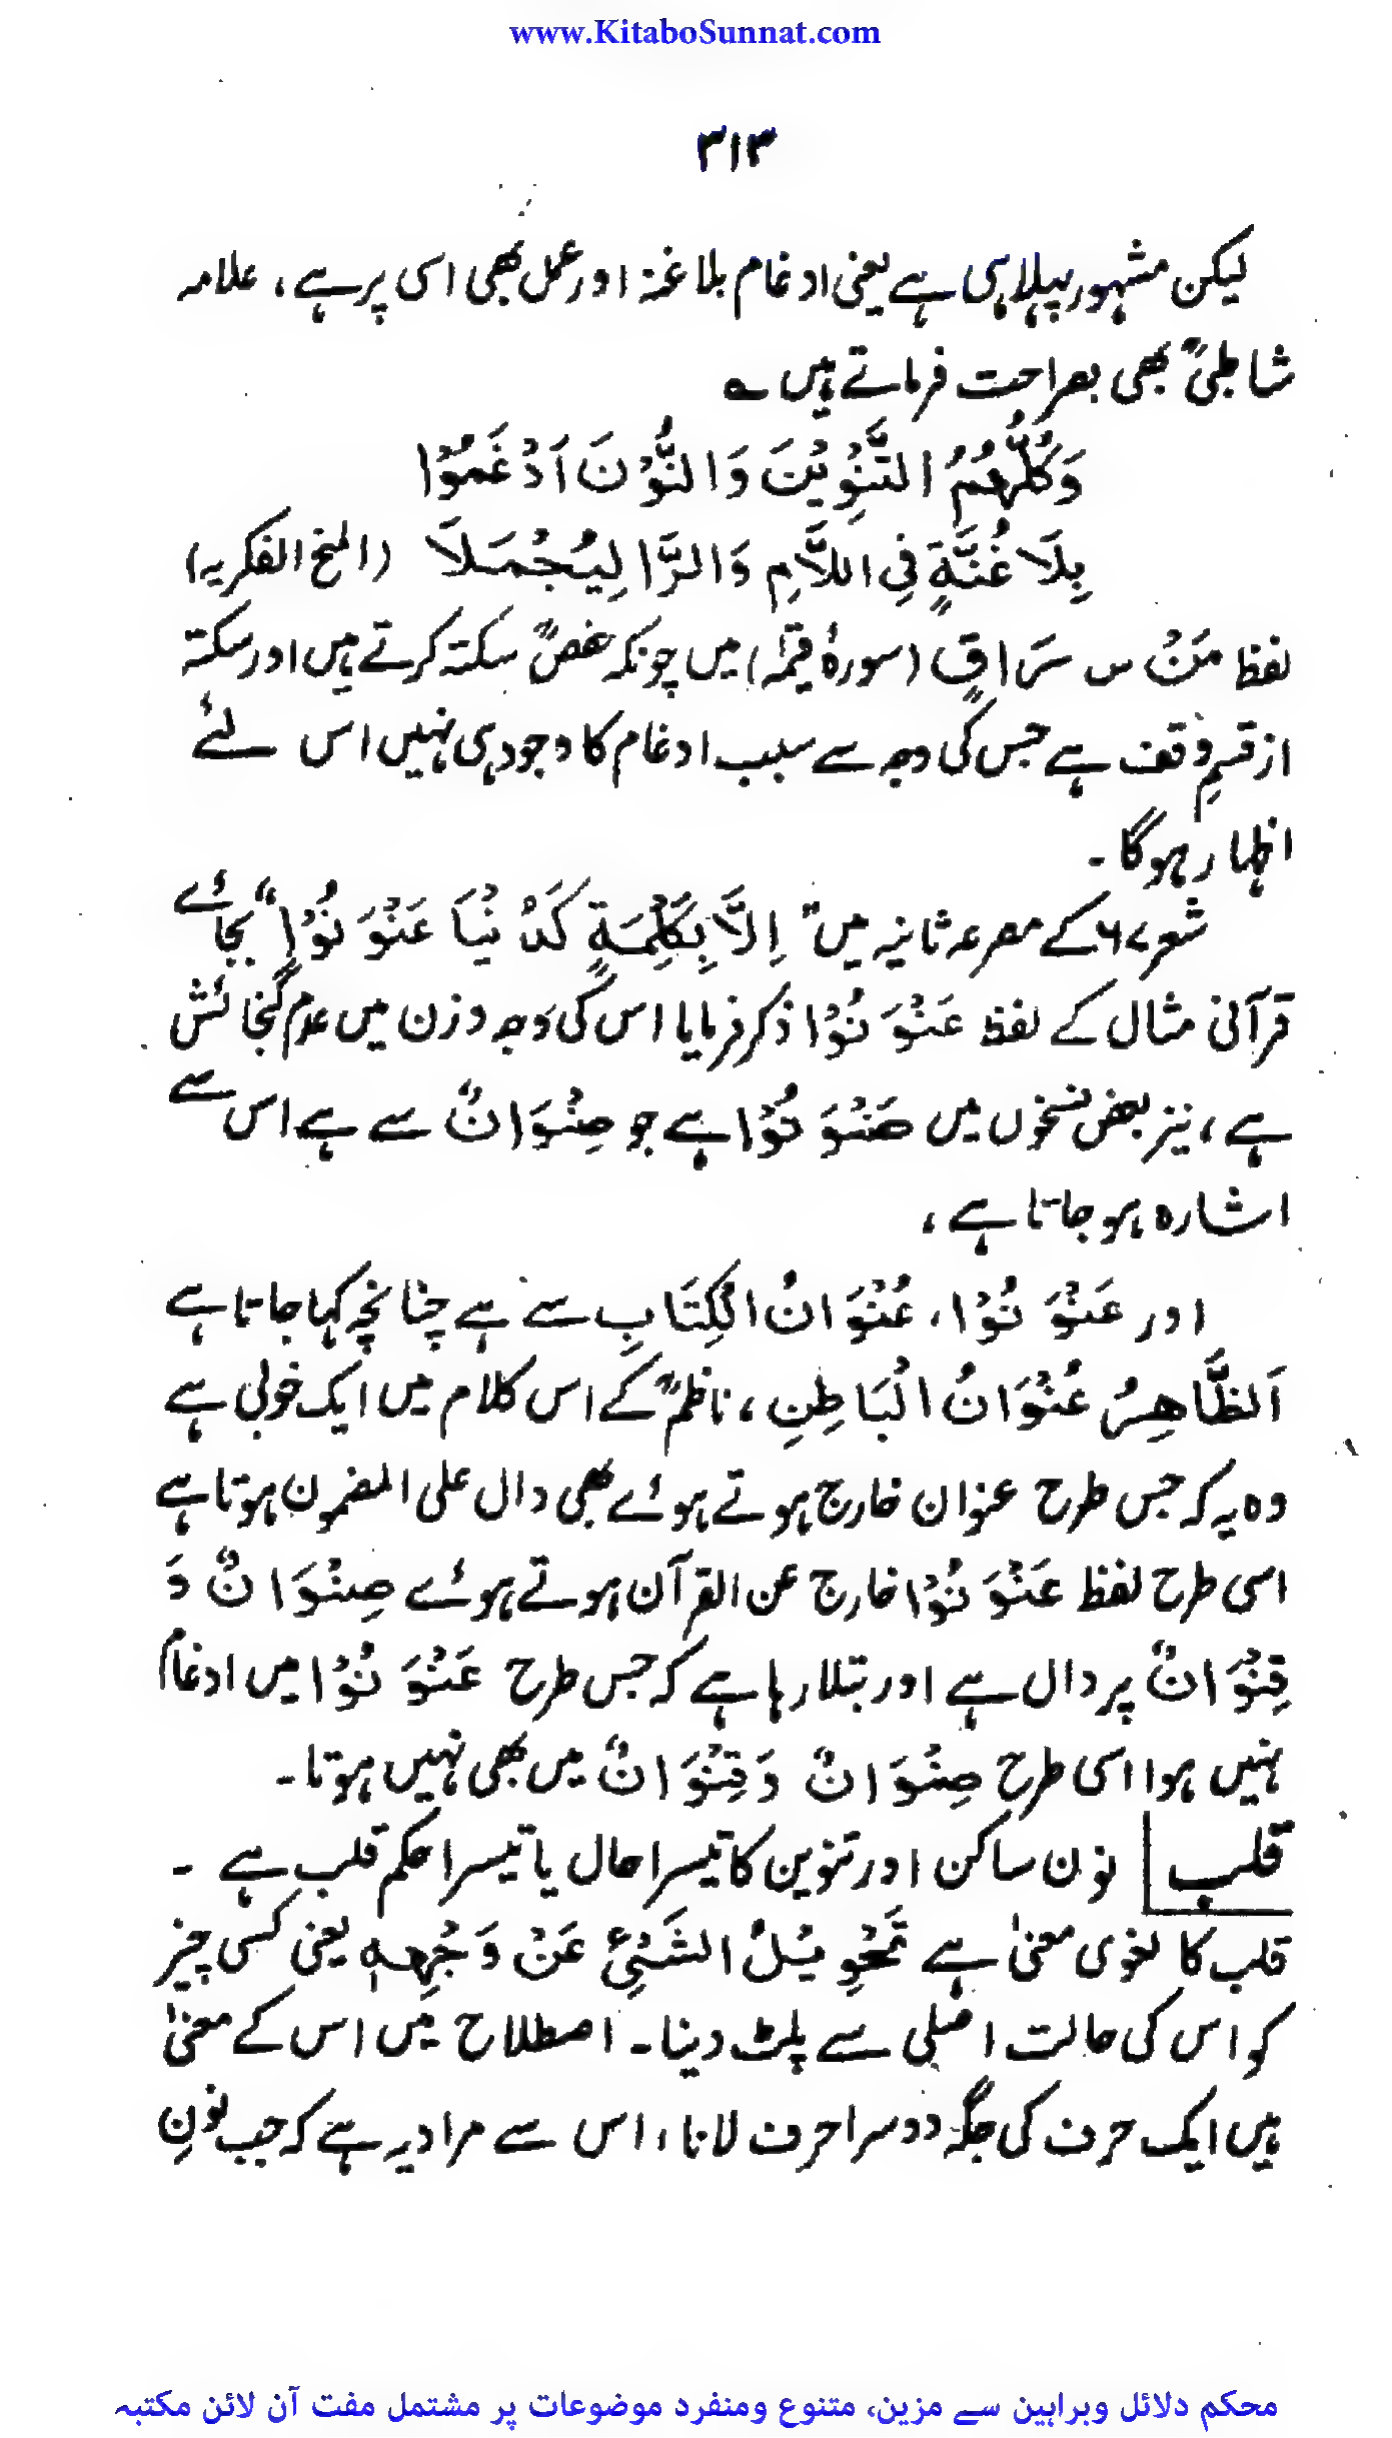 www.KitaboSunnat.com
۳۱۳
لیکن مشہور پہلا ہی ہے یعنی ادغام بلا غنۃ اور عمل بھی اسی پر ہے، علامہ
شاطبیؒ بھی بصراحت فرماتے ہیں ؎
وَكُلُّهُمُ التَّنْوِيْنَ وَالنُّوْنَ اَدْغَمُوْا
بِلَا غُنَّةٍ فِي اللَّامِ وَالرَّا لِيَجْمُلَا (المنح الفکریہ)
لفظ مَنْ س رَاقٍ (سورۂ قیٰمہ) میں چونکہ حفصؒ سکتہ کرتے ہیں اور سکتہ
از قسمِ وقف ہے جس کی وجہ سے سبب ادغام کا وجود ہی نہیں اس لئے
اظہار ہوگا۔
شعر ۶۷ کے مصرعہ ثانیہ میں "اِلَّا بِكَلِمَةٍ كَدُنْيَا عَنْوَنُوْا" بجائے
قرآنی مثال کے لفظ عَنْوَنُوْا ذکر فرمایا اس کی وجہ وزن میں عدم گنجائش
ہے، نیز بعض نسخوں میں صَنْوَنُوْا ہے جو صِنْوَانٌ سے ہے اس سے
اشارہ ہو جاتا ہے،
اور عَنْوَنُوْا، عُنْوَانُ الْكِتَابِ سے ہے چنانچہ کہا جاتا ہے
اَلظَّاهِرُ عُنْوَانُ الْبَاطِنِ، ناظمؒ کے اس کلام میں ایک خوبی ہے
وہ یہ کہ جس طرح عنوان خارج ہوتے ہوئے بھی دال علی المضمون ہوتا ہے
اسی طرح لفظ عَنْوَنُوْا خارج عن القرآن ہوتے ہوئے صِنْوَانٌ وَ
قِنْوَانٌ پر دال ہے اور بتلا رہا ہے کہ جس طرح عَنْوَنُوْا میں ادغام
نہیں ہوا اسی طرح صِنْوَانٌ وَقِنْوَانٌ میں بھی نہیں ہوتا۔
قلب نون ساکن اور تنوین کا تیسرا حال یا تیسرا حکم قلب ہے ۔
قلب کا لغوی معنیٰ ہے تَحْوِيْلُ الشَّيْئِ عَنْ وَجْهِهٖ یعنی کسی چیز
کو اس کی حالت اصلی سے پلٹ دینا۔ اصطلاح میں اس کے معنیٰ
ہیں ایک حرف کی جگہ دوسرا حرف لانا، اس سے مراد یہ ہے کہ جب نونِ
محکم دلائل وبراہین سے مزین، متنوع ومنفرد موضوعات پر مشتمل مفت آن لائن مکتبہ